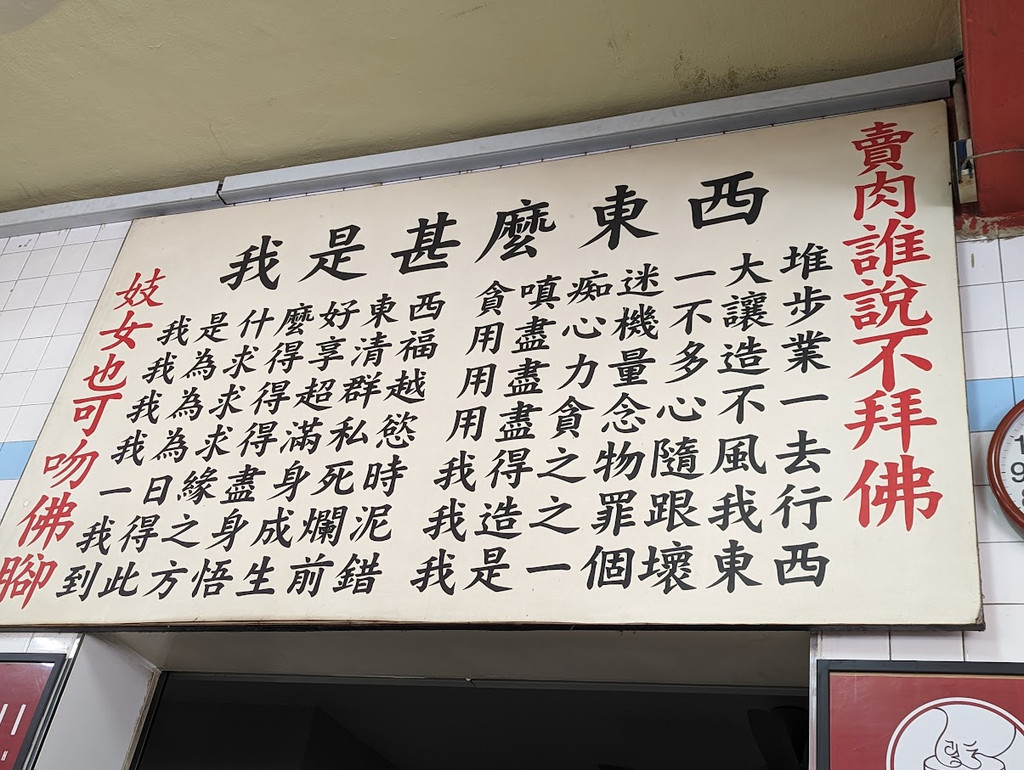 我是甚麼東西
賣肉誰說不拜佛
我是什麼好東西 貪嗔痴迷一大堆
我為求得享清福 用盡心機不讓步
我為求得超群越 用盡力量多造業
我為求得滿私慾 用盡貪念心不一
一日緣盡身死時 我得之物隨風去
我得之身成爛泥 我造之罪跟我行
到此方悟生前錯 我是一個壞東西
妓女也可吻佛腳